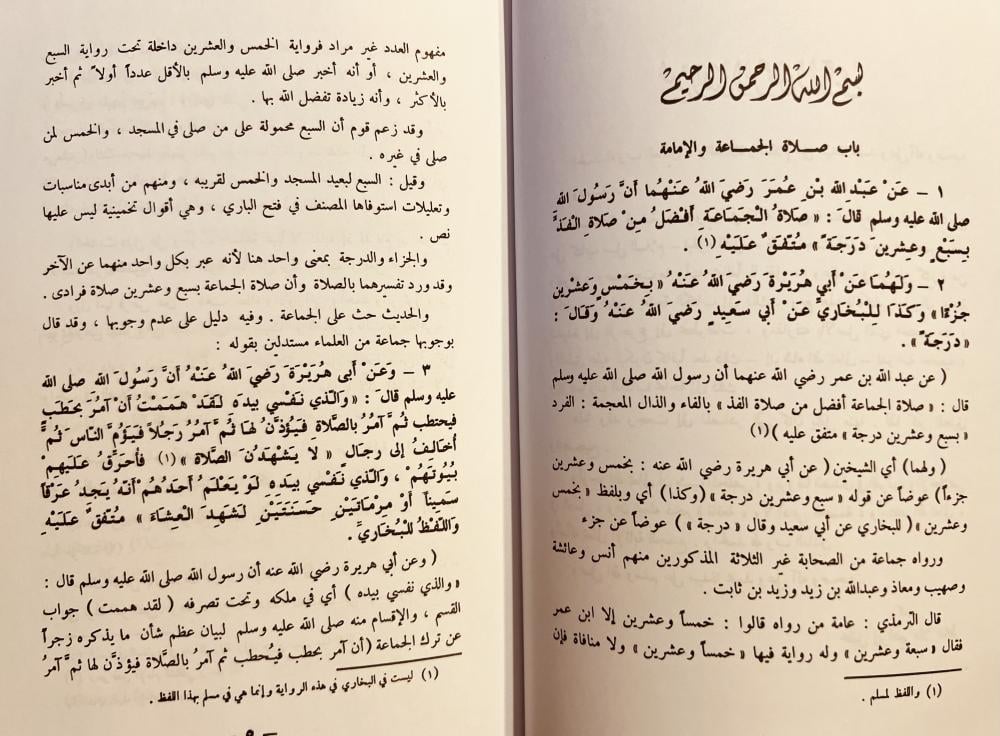 بسم الله الرحمن الرحيم
باب صلاة الجماعة والإمامة
١ – عَنْ عَبْدِ اللهِ بْنِ عُمَرَ رَضِيَ اللهُ عَنْهُمَا أَنَّ رَسُولَ الله
صلى الله عليه وسلم قالَ : « صَلاةُ الْجَمَاعَةِ أَفْضَلُ مِنْ صَلاةِ الْفَذِّ
بِسَبْعٍ وعِشرينَ دَرَجَةً » مُتَّفَقٌ عَلَيْهِ (١) .
٢ – وَلَهُمَا عَنْ أَبي هُرَيْرَةَ رَضِيَ اللهُ عَنْهُ « بِخَمْسٍ وَعَشْرين
جُزْءًا » وَكَذَا لِلْبُخَاريِّ عَنْ أبي سَعِيدٍ رَضِيَ اللهُ عَنْهُ وَقَالَ :
« دَرَجَةً » .
( عن عبد الله بن عمر رضي الله عنهما أن رسول الله صلى الله عليه وسلم
قال : « صلاة الجماعة أفضل من صلاة الفذ » بالفاء والذال المعجمة : الفرد
« بسبع وعشرين درجة » متفق عليه ) (١)
( ولهما ) أي الشيخين ( عن أبي هريرة رضي الله عنه : بخمس وعشرين
جزءاً ) عوضاً عن قوله « سبع وعشرين درجة » ( وكذا ) أي وبلفظ « بخمس
وعشرين » ( للبخاري عن أبي سعيد وقال « درجة » ) عوضاً عن جزء
ورواه جماعة من الصحابة غير الثلاثة المذكورين منهم أنس وعائشة
وصهيب ومعاذ وعبدالله بن زيد وزيد بن ثابت .
قال الترمذي : عامة من رواه قالوا : خمساً وعشرين إلا ابن عمر
فقال « سبعة وعشرين » وله رواية فيها « خمساً وعشرين » ولا منافاة فإن
(١) واللفظ لمسلم .
مفهوم العدد غير مراد فرواية الخمس والعشرين داخلة تحت رواية السبع
والعشرين ، أو أنه أخبر صلى الله عليه وسلم بالأقل عدداً أولاً ثم أخبر
بالأكثر ، وأنه زيادة تفضل الله بها .
وقد زعم قوم أن السبع محمولة على من صلى في المسجد ، والخمس لمن
صلى في غيره .
وقيل : السبع لبعيد المسجد والخمس لقريبه ، ومنهم من أبدى مناسبات
وتعليلات استوفاها المصنف في فتح الباري ، وهي أقوال تخمينية ليس عليها
نص .
والجزاء والدرجة بمعنى واحد هنا لأنه عبر بكل واحد منهما عن الآخر
وقد ورد تفسيرهما بالصلاة وأن صلاة الجماعة بسبع وعشرين صلاة فرادى .
والحديث حث على الجماعة . وفيه دليل على عدم وجوبها ، وقد قال
بوجوبها جماعة من العلماء مستدلين بقوله :
٣ – وَعَنْ أبى هُرَيْرَةَ رَضِيَ اللهُ عَنْهُ أَنَّ رَسُولَ الله صلى الله
عليه وسلم قالَ : « وَالَّذي نَفْسي بيده لَقَدْ هَمَمْتُ أَنْ آمُرَ بحَطَبٍ
فيحتطب ثُمَّ آمُرُ بالصَّلاةِ فيؤذَّنُ لهَا ثُمَّ آمُرُ رَجُلاً فَيَؤُمَّ النَّاسَ ثُمَّ
أُخَالِفُ إلى رجالٍ « لا يَشْهَدُونَ الصَّلاةَ » (١) فَأُحَرِّقُ عَلَيهِمْ
بُيُوتَهُمْ ، والَّذي نَفْسي بيده لَوْ يَعْلَمُ أَحَدُهُمْ أَنَّه يَجِدُ عَرْقاً
سَمِيناً أَوْ مِرْمَاتَيْنِ حَسَنَتَيْنِ لَشَهِدَ الْعِشَاءَ » مُتَّفَقٌ عَلَيْهِ
وَاللَّفْظُ للْبُخَارِيِّ .
( وعن أبي هريرة رضي الله عنه أن رسول الله صلى الله عليه وسلم قال :
« والذي نفسي بيده ) أي في ملكه وتحت تصرفه ( لقد هممت ) جواب
القسم ، والإقسام منه صلى الله عليه وسلم لبيان عظم شأن ما يذكره زجراً
عن ترك الجماعة ( أن آمر بحطب فيُحطب ثم آمرُ بالصَّلاة فيؤذَّن لها ثمَّ آمرُ
(١) ليست في البخاري في هذه الرواية وإنما هي في مسلم بهذا اللفظ .